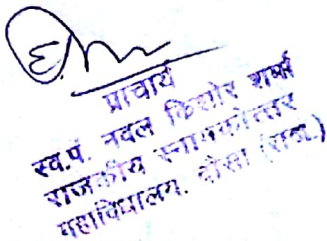 प्राचार्य
स्व.पं. नवल किशोर शर्मा
राजकीय स्नातकोत्तर
महाविद्यालय, दौसा (राज.)